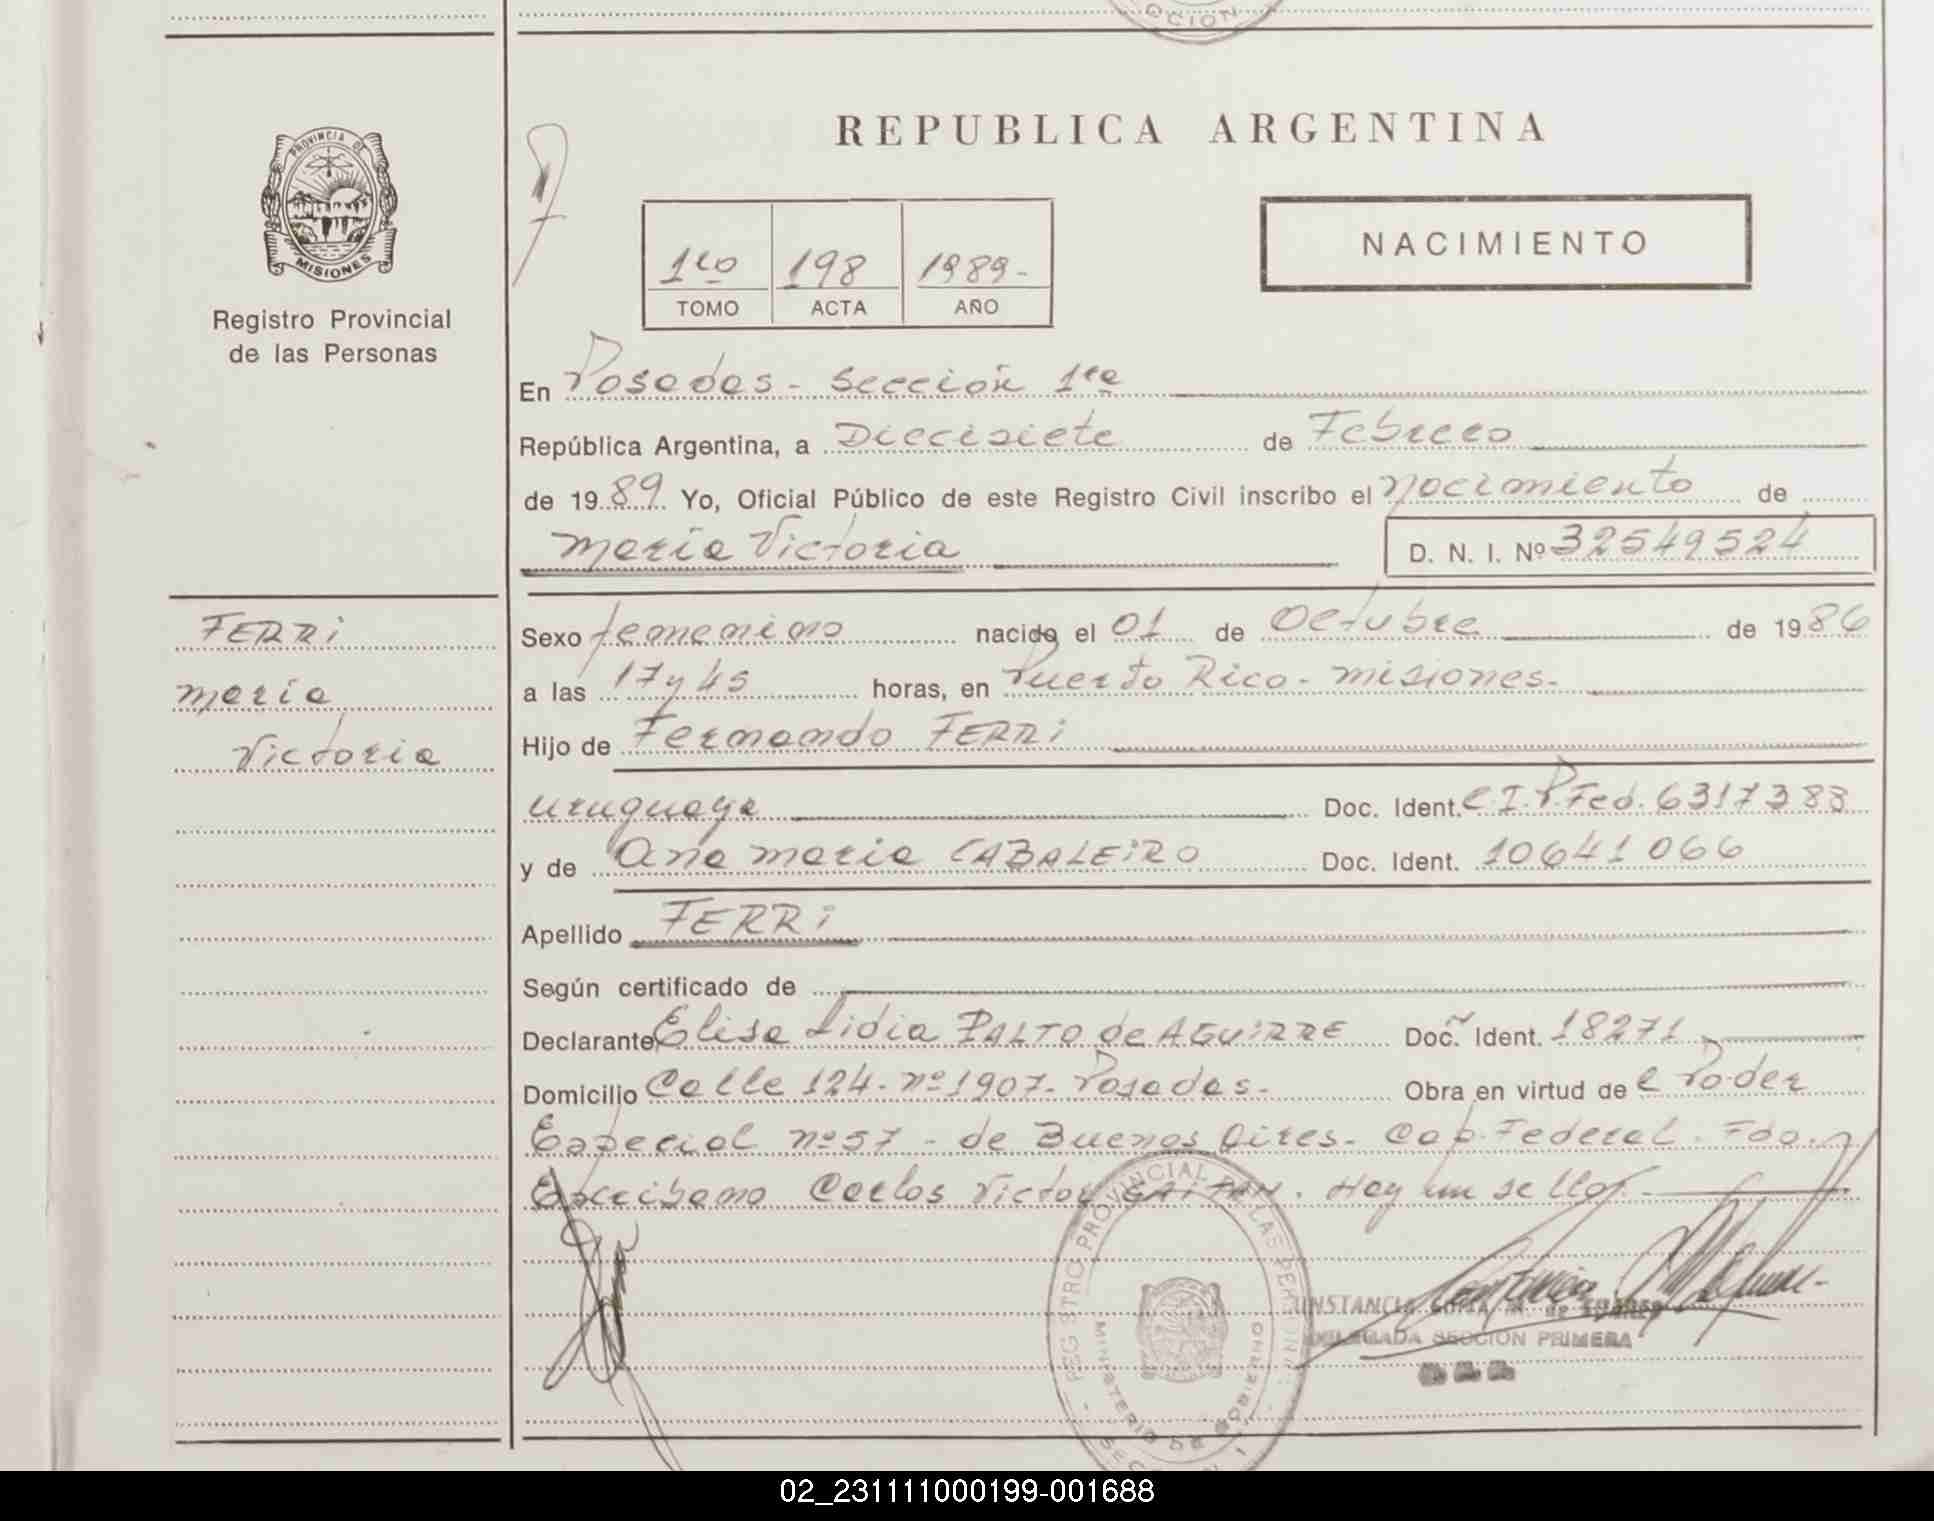 CCION
PROVINCIA DE
MISIONES
Registro Provincial
de las Personas
REPUBLICA ARGENTINA
1ro 198 1989-
TOMO ACTA AÑO
NACIMIENTO
En Posadas - Sección 1ra
República Argentina, a Diecisiete de Febrero
de 1989 Yo, Oficial Público de este Registro Civil inscribo el nacimiento de
María Victoria D. N. I. Nº 32549524
FERRi
María
Victoria
Sexo femenino nacido el 01 de Octubre de 1986
a las 17 y 45 horas, en Puerto Rico - Misiones-
Hijo de Fernando FERRi
uruguaya Doc. Ident. C.I.P.Fed. 6317383
y de Ana María CABALEiRO Doc. Ident. 10641066
Apellido FERRi
Según certificado de
Declarante Elisa Lidia PALTO de AGUiRRE Doc. Ident. 18271
Domicilio Calle 124- nº 1907- Posadas- Obra en virtud de e Poder
Especial nº 57 - de Buenos Aires- Cap. Federal. Fdo.
Escribano Carlos Victor GAITAN. Hay un sello.-
REGISTRO PROVINCIAL DE LAS PERSONAS
MINISTERIO DE GOBIERNO
DELEGADA SECCION PRIMERA
02_231111000199-001688